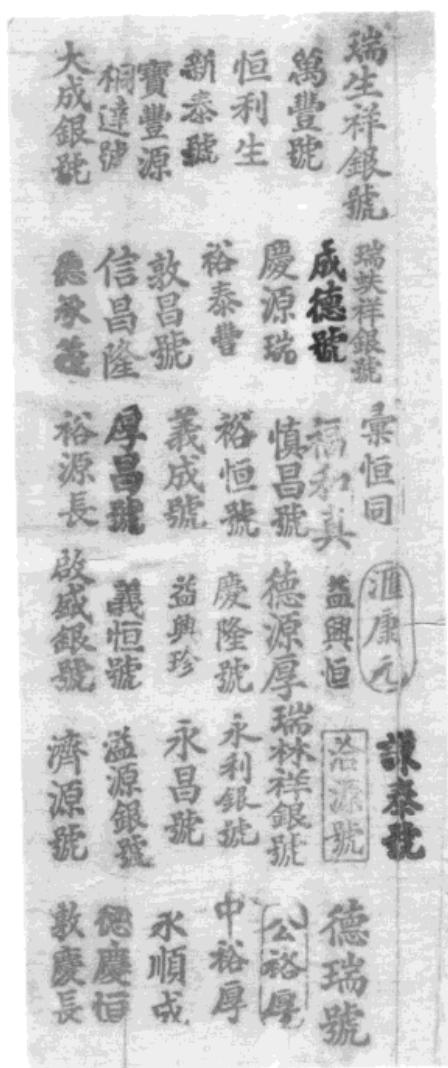 瑞生祥銀號
萬豐號
恒利生
新泰號
寶豐源
桐達號
大成銀號
瑞蚨祥銀號
成德號
慶源瑞
裕泰豐
敦昌號
信昌隆
德承益
彙恒同
福和真
慎昌號
裕恒號
義成號
厚昌號
裕源長
滙康元
益興恒
德源厚
慶隆號
益興珍
義恒號
啟盛銀號
謙泰號
洽源號
瑞林祥銀號
永利銀號
永昌號
溢源銀號
濟源號
德瑞號
公裕厚
中裕厚
永順成
德慶恒
敦慶長